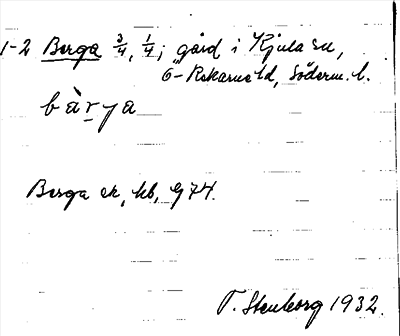 1-2 Berga 3/4, 1/4; gård i Kjula sn,
Ö-Rekarne hd, Söderm. l.
bàrya
Berga ek, kb, G 74.
T. Stenborg 1932.